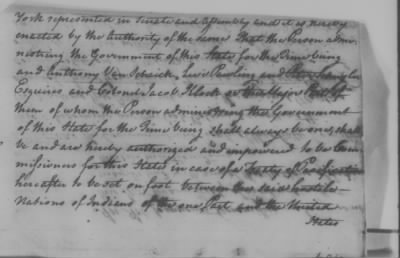 York represented in Senate and Assembly and it is hereby
enacted by the Authority of the same That the Person admi-
nistring the Government of this State for the Time being
and Anthony Van Schaick, Pawling and Peter Schuyler
Esquires and Colonel Jacob Klock or the Major Part of
them of whom the Person administring the Government
of this State for the Time being shall always be one, shall
be and are hereby authorized and impowered to be Com
missioners for this State in case of a Treaty of Pacification
hereafter to be set on foot between the said hostile
Nations of Indians of the one Part and the United
States